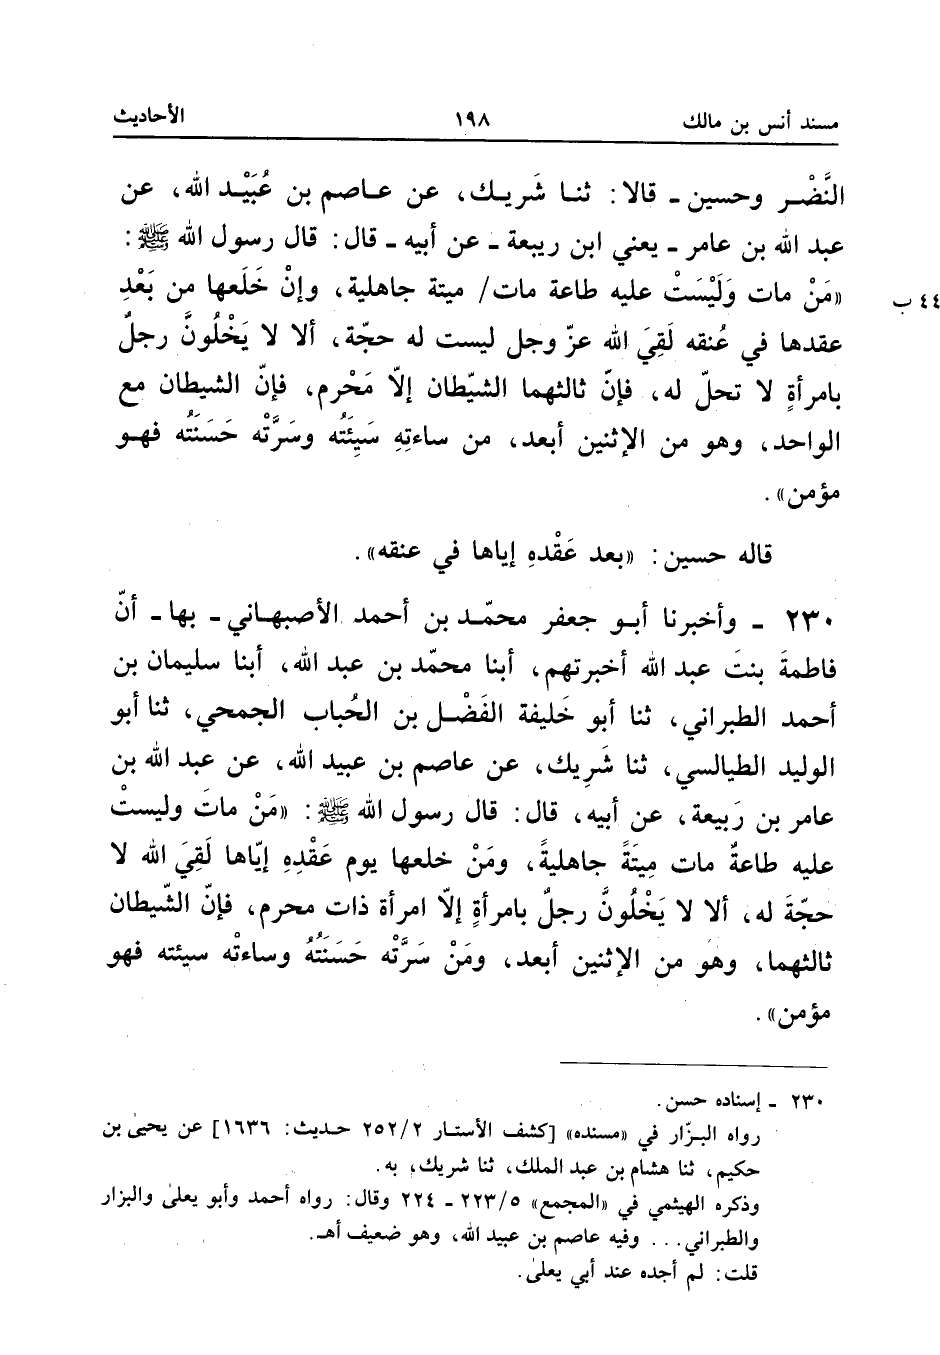 مسند أنس بن مالك ١٩٨ الأحاديث
النَّضْر وحسين ـ قالا: ثنا شَريك، عن عاصم بن عُبَيْد الله، عن
عبد الله بن عامر ـ يعني ابن ربيعة ـ عن أبيه ـ قال: قال رسول الله ﷺ:
«مَنْ مات وَلَيْسَتْ عليه طاعة مات/ ميتة جاهلية، وإنْ خَلَعها من بَعْدِ ٤٤ ب
عقدها في عُنقه لَقِيَ الله عزّ وجل ليست له حجّة، ألا لا يَخْلُونَّ رجلٌ
بامرأةٍ لا تحلّ له، فإنّ ثالثهما الشيّطان إلاّ مَحْرم، فإنّ الشيطان مع
الواحد، وهو من الإثنين أبعد، من ساءتِهِ سَيِئَتُه وسَرَّتْه حَسَنَتُه فهو
مؤمن».
قاله حسين: «بعد عَقْدهِ إياها في عنقه».
٢٣٠ ـ وأخبرنا أبو جعفر محمّد بن أحمد الأصبهاني ـ بها ـ أنّ
فاطمةَ بنتَ عبد الله أخبرتهم، أبنا محمّد بن عبد الله، أبنا سليمان بن
أحمد الطبراني، ثنا أبو خَليفة الفَضْل بن الحُباب الجمحي، ثنا أبو
الوليد الطيالسي، ثنا شَرِيك، عن عاصم بن عبيد الله، عن عبد الله بن
عامر بن رَبيعة، عن أبيه، قال: قال رسول الله ﷺ: «مَنْ ماتَ وليستْ
عليه طاعةٌ مات مِيتَةً جاهليةً، ومَنْ خلعها يوم عَقْدِهِ إيّاها لَقِيَ الله لا
حجّةَ له، ألا لا يَخْلُونَّ رجلٌ بامرأةٍ إلاّ امرأة ذات محرم، فإنّ الشّيطان
ثالثهما، وهو من الإثنين أبعد، ومَنْ سَرَّتْه حَسَنَتُهُ وساءتْه سيئته فهو
مؤمن».
٢٣٠ ـ إسناده حسن.
رواه البزّار في «مسنده» [كشف الأستار ٢٥٢/٢ حديث: ١٦٣٦] عن يحيىٰ بن
حكيم، ثنا هشام بن عبد الملك، ثنا شريك، به.
وذكره الهيثمي في «المجمع» ٢٢٣/٥ ـ ٢٢٤ وقال: رواه أحمد وأبو يعلىٰ والبزار
والطبراني... وفيه عاصم بن عبيد الله، وهو ضعيف أهـ.
قلت: لم أجده عند أبي يعلىٰ.